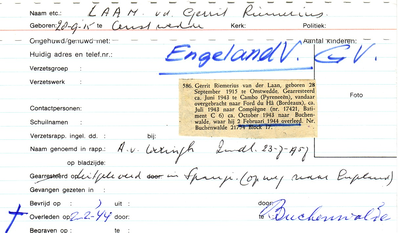 Naam etc.: LAAN v.d. Gerrit Riemerius
Geboren: 28-9-15 te Onstwedde Kerk: Politiek:
Ongehuwd/gehuwd met: Aantal kinderen:
Engeland V. G.V.
Huidig adres en telef.nr.:
Verzetsgroep :
Verzetswerk :
586. Gerrit Riemerius van der Laan, geboren 28
September 1915 te Onstwedde. Gearresteerd
ca. Juni 1943 te Cambo (Pyreneeën), vandaar
overgebracht naar Ford du Hâ (Bordeaux), ca.
Juli 1943 naar Compiègne (nr. 17421, Bati-
ment C 6) ca. October 1943 naar Buchen-
walde, waar hij 2 Februari 1944 overleed. Nr.
Buchenwalde 21774 Block 17.
Contactpersonen:
Schuilnaam :
Verzetsrapp. ingel. dd. : bij
Naam genoemd in rapp.: A.v. 23-7-1957
op bladzijde:
Gearresteerd op uitgeleverd door in Spanje. (op weg naar Engeland)
Gevangen gezeten in :
Bevrijd op : uit: door:
Overleden op: 2-2-44 door: te Buchenwalde